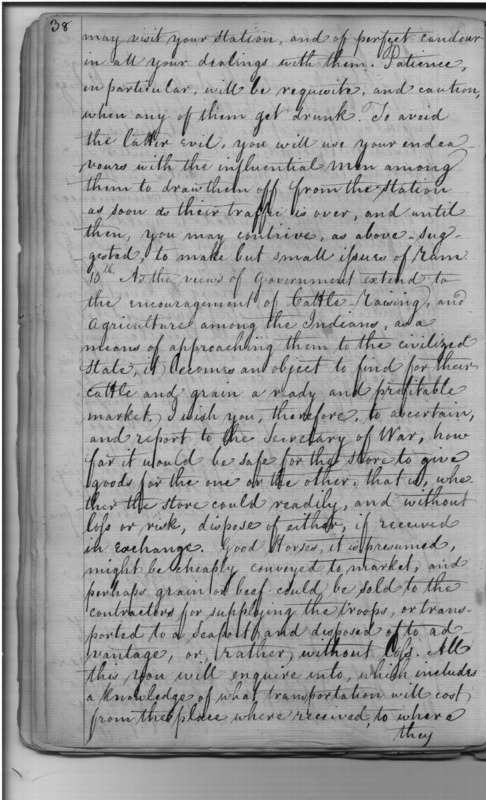 38
may visit your station, and of perfect candour
in all your dealings with them. Patience,
in particular, will be requisite, and caution,
when any of them get drunk. To avoid
the latter evil, you will use your endea-
vours with the influential men among
them to draw them off from the station
as soon as their traffic is over, and until
then, you may contrive, as above sug-
gested, to make but small issues of rum
10th. As the views of Government extend to
the encouragement of Cattle raising, and
Agriculture among the Indians, as a
means of approaching them to the civilized
state, it becomes an object to find for their
Cattle and grain a ready and profitable
market. I wish you, therefore, to ascertain,
and report to the Secretary of War, how
far it would be safe for the store to give
goods for the one or the other, that is, whe
ther the store could readily, and without
loss or risk, dispose of either, if received
in exchange. Good Horses, it is presumed,
might be cheaply conveyed to market, and
perhaps grain or beef could be sold to the
contractors for supplying the troops, or trans-
ported to a Seaport and disposed of to ad-
vantage, or, rather, without loss. All
this you will enquire into, which includes
a knowledge of what transportation will cost,
from the place where received, to where
they